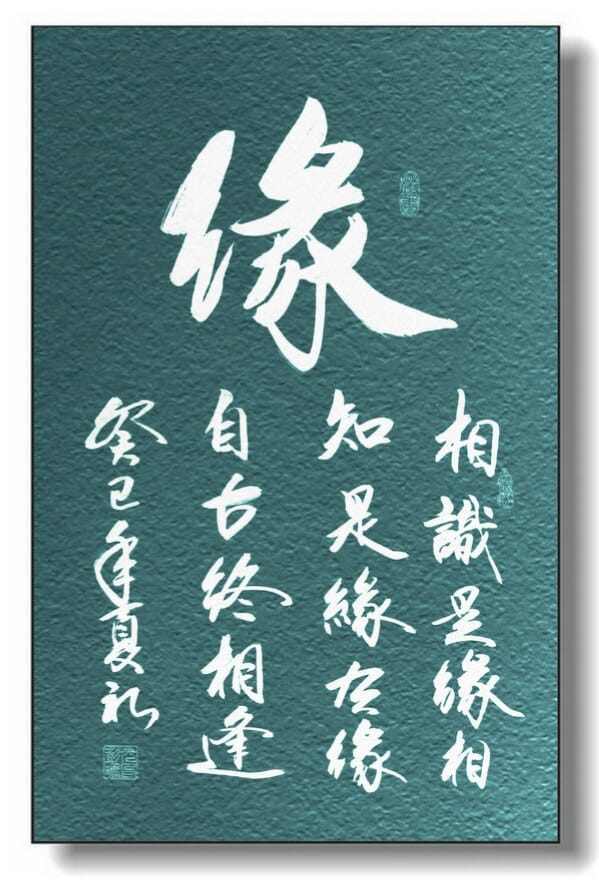 緣
相識是緣相
知是緣有緣
自古終相逢
癸巳年夏礼